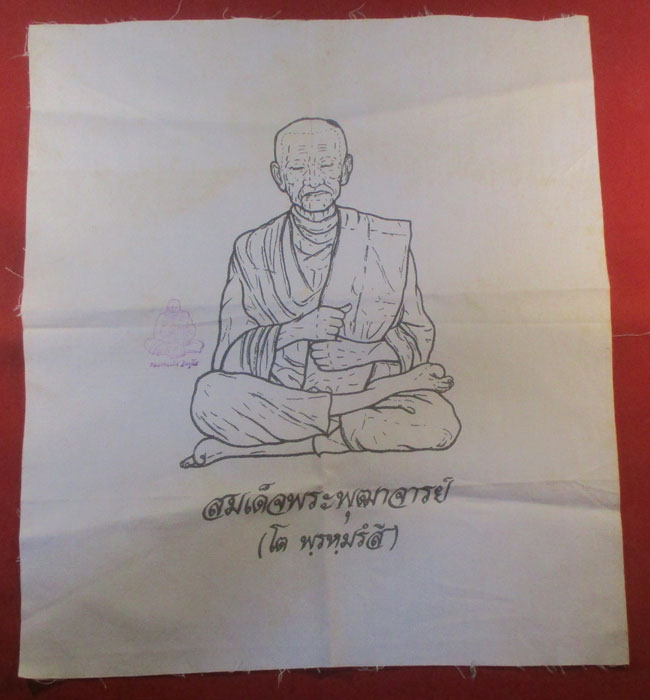 สมเด็จพระพุฒาจารย์
(โต พฺรหฺมรํสี)